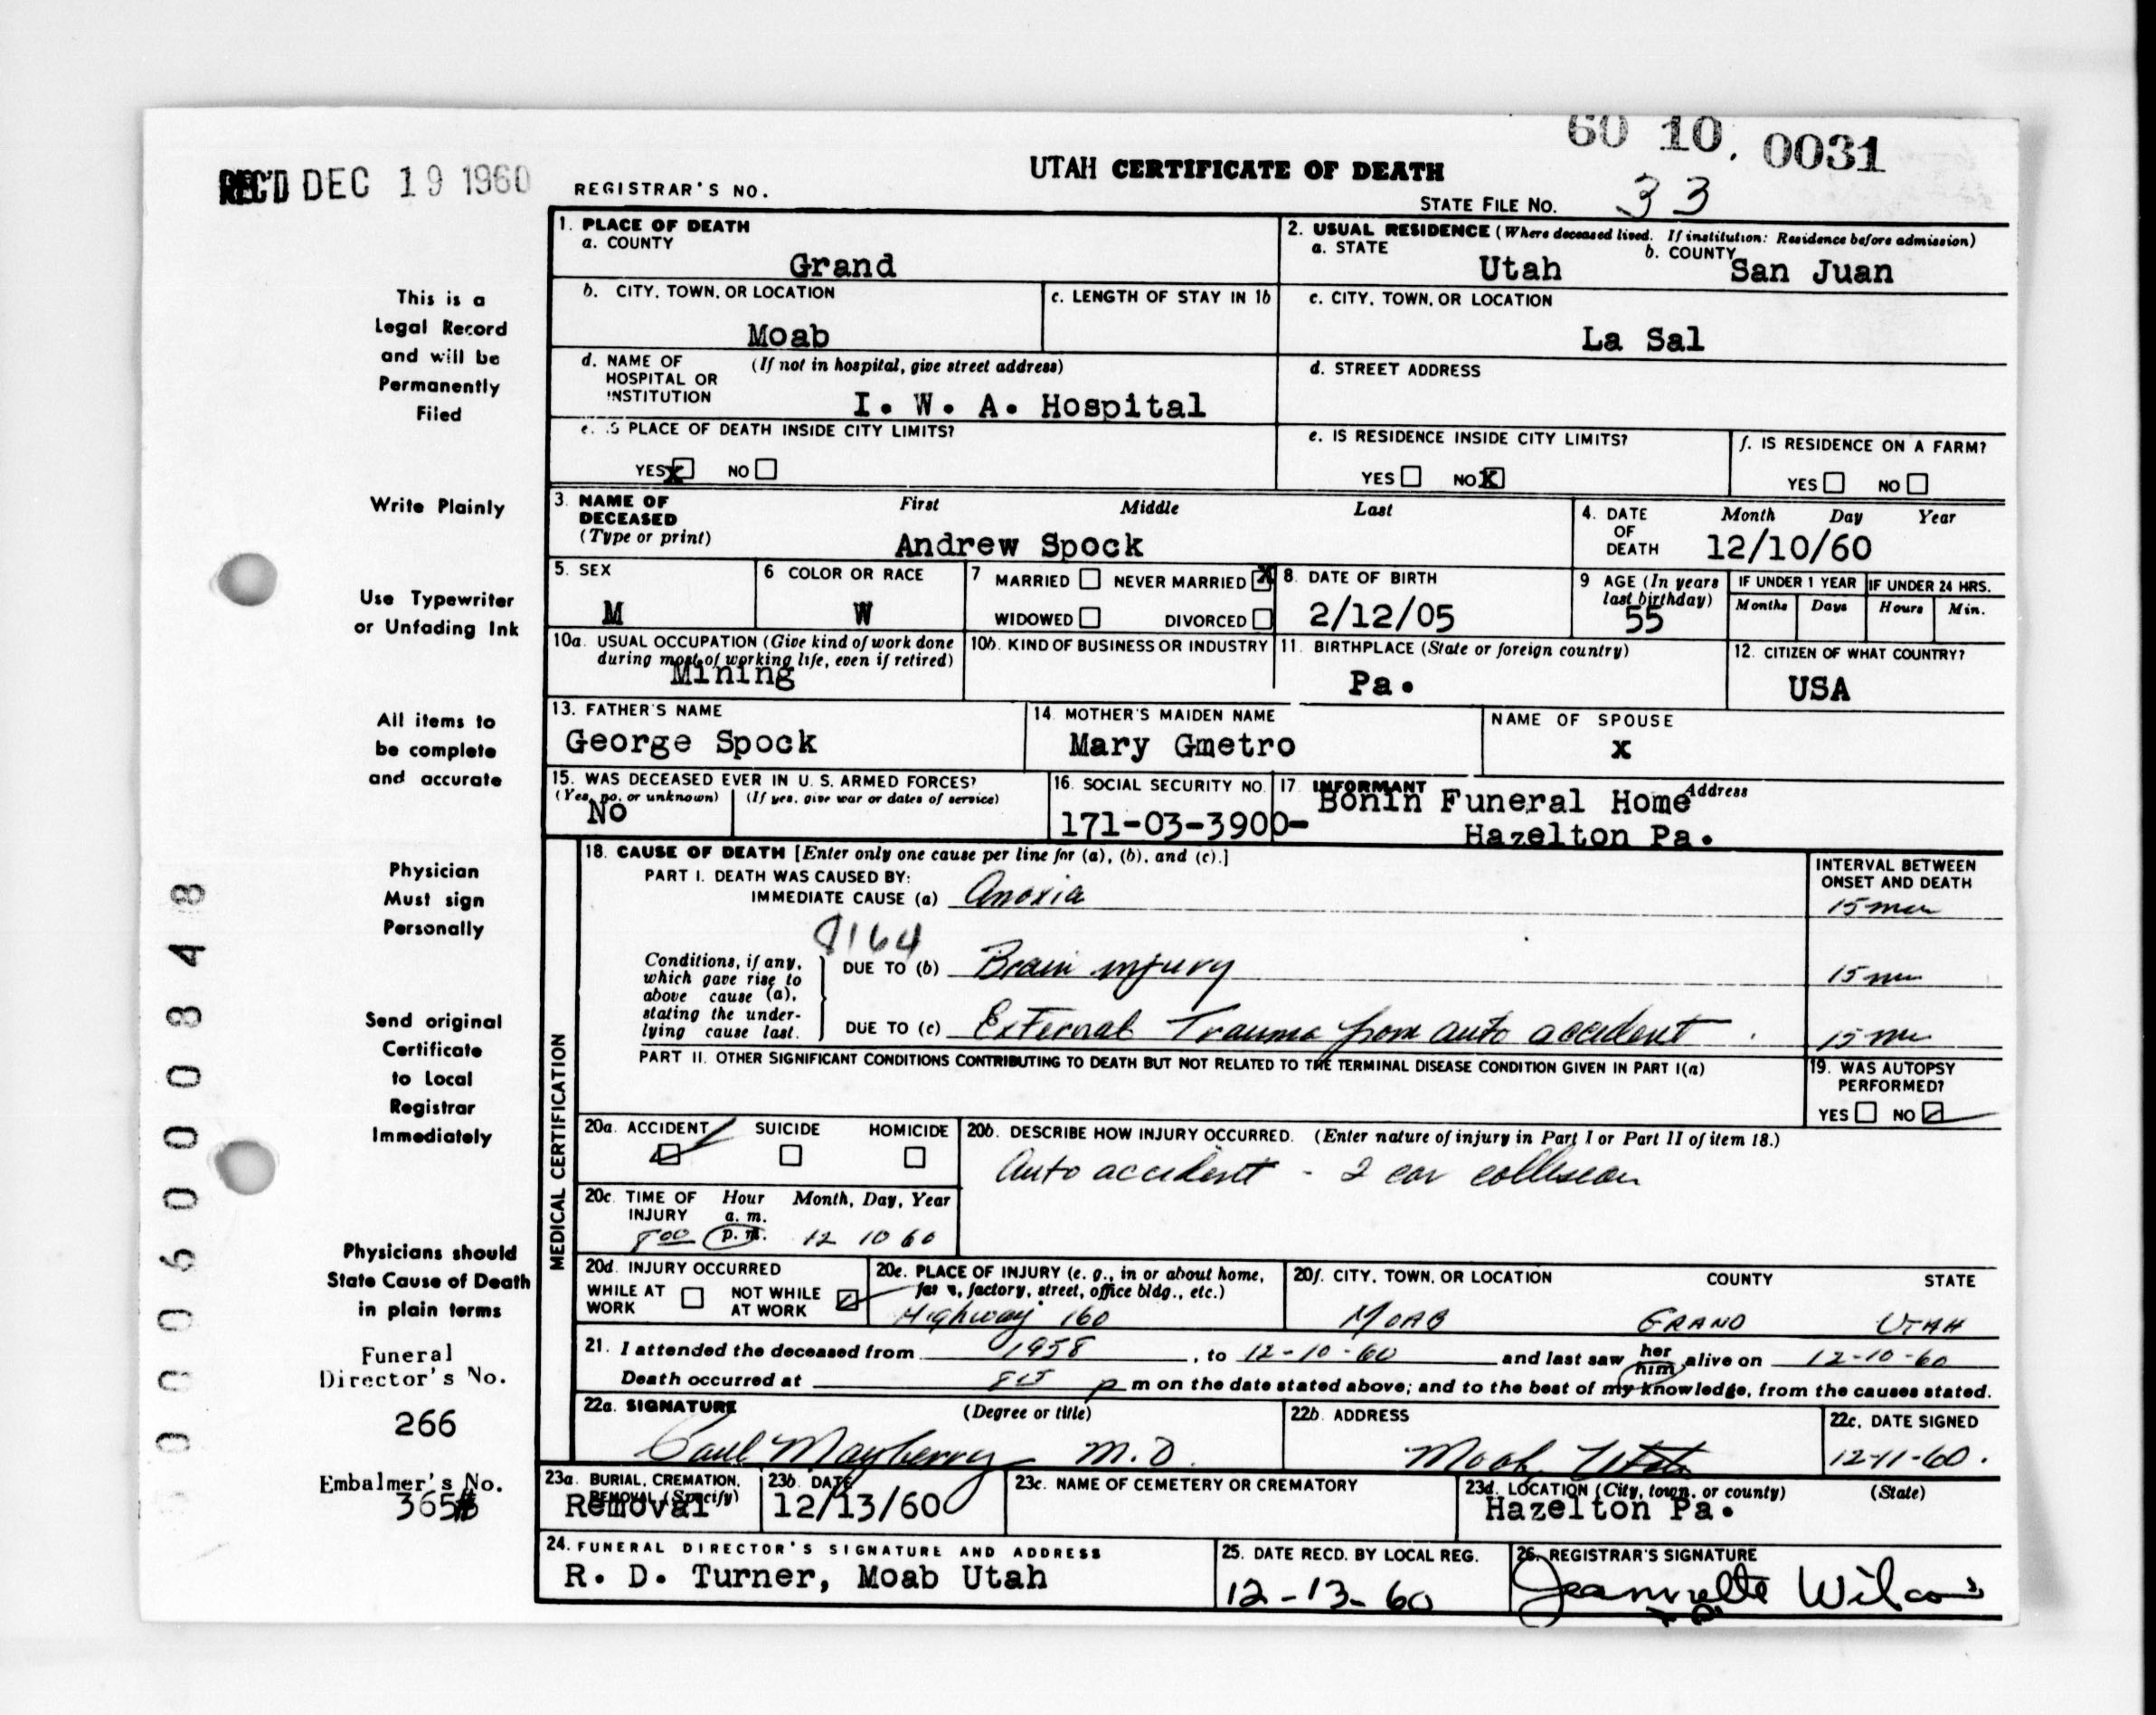 60 10. 0031
REC'D DEC 19 1960
UTAH CERTIFICATE OF DEATH
REGISTRAR'S NO.
STATE FILE NO. 33
1. PLACE OF DEATH
a. COUNTY
Grand
2. USUAL RESIDENCE (Where deceased lived. If institution: Residence before admission)
a. STATE Utah b. COUNTY San Juan
b. CITY, TOWN, OR LOCATION
Moab
c. LENGTH OF STAY IN 1b
c. CITY, TOWN, OR LOCATION
La Sal
d. NAME OF HOSPITAL OR INSTITUTION (If not in hospital, give street address)
I. W. A. Hospital
d. STREET ADDRESS
e. IS PLACE OF DEATH INSIDE CITY LIMITS?
YES X NO
e. IS RESIDENCE INSIDE CITY LIMITS?
YES NO X
f. IS RESIDENCE ON A FARM?
YES NO
3. NAME OF DECEASED (Type or print)
First Middle Last
Andrew Spock
4. DATE OF DEATH Month Day Year
12/10/60
5. SEX
M
6 COLOR OR RACE
W
7 MARRIED NEVER MARRIED X
WIDOWED DIVORCED
8. DATE OF BIRTH
2/12/05
9 AGE (In years last birthday)
55
IF UNDER 1 YEAR
Months Days
IF UNDER 24 HRS.
Hours Min.
10a. USUAL OCCUPATION (Give kind of work done during most of working life, even if retired)
Mining
10b. KIND OF BUSINESS OR INDUSTRY
11. BIRTHPLACE (State or foreign country)
Pa.
12. CITIZEN OF WHAT COUNTRY?
USA
13. FATHER'S NAME
George Spock
14. MOTHER'S MAIDEN NAME
Mary Gmetro
NAME OF SPOUSE
x
15. WAS DECEASED EVER IN U. S. ARMED FORCES?
(Yes, no, or unknown) (If yes, give war or dates of service)
No
16. SOCIAL SECURITY NO.
171-03-3900-
17. INFORMANT Address
Bonin Funeral Home
Hazelton Pa.
MEDICAL CERTIFICATION
18. CAUSE OF DEATH [Enter only one cause per line for (a), (b), and (c).]
PART I. DEATH WAS CAUSED BY:
IMMEDIATE CAUSE (a) Anoxia
INTERVAL BETWEEN ONSET AND DEATH
15 min
8164
Conditions, if any, which gave rise to above cause (a), stating the underlying cause last.
DUE TO (b) Brain injury
15 min
DUE TO (c) External Trauma from auto accident.
15 min
PART II. OTHER SIGNIFICANT CONDITIONS CONTRIBUTING TO DEATH BUT NOT RELATED TO THE TERMINAL DISEASE CONDITION GIVEN IN PART I(a)
19. WAS AUTOPSY PERFORMED?
YES NO
20a. ACCIDENT SUICIDE HOMICIDE
20b. DESCRIBE HOW INJURY OCCURRED. (Enter nature of injury in Part I or Part II of item 18.)
Auto accident - 2 car collision
20c. TIME OF INJURY Hour Month, Day, Year
a. m.
8 00 p. m. 12 10 60
20d. INJURY OCCURRED
WHILE AT WORK NOT WHILE AT WORK
20e. PLACE OF INJURY (e. g., in or about home, farm, factory, street, office bldg., etc.)
Highway 160
20f. CITY, TOWN, OR LOCATION COUNTY STATE
MOAB GRAND UTAH
21. I attended the deceased from 1958, to 12-10-60 and last saw her him alive on 12-10-60
Death occurred at 815 p m on the date stated above; and to the best of my knowledge, from the causes stated.
22a. SIGNATURE (Degree or title)
Paul Mayberry M.D.
22b. ADDRESS
Moab Utah
22c. DATE SIGNED
12-11-60.
23a. BURIAL, CREMATION, REMOVAL (Specify)
Removal
23b. DATE
12/13/60
23c. NAME OF CEMETERY OR CREMATORY
23d. LOCATION (City, town, or county) (State)
Hazelton Pa.
24. FUNERAL DIRECTOR'S SIGNATURE AND ADDRESS
R. D. Turner, Moab Utah
25. DATE RECD. BY LOCAL REG.
12-13-60
26. REGISTRAR'S SIGNATURE
Jeannette Wilcox
This is a
Legal Record
and will be
Permanently
Filed
Write Plainly
Use Typewriter
or Unfading Ink
All items to
be complete
and accurate
Physician
Must sign
Personally
Send original
Certificate
to Local
Registrar
Immediately
Physicians should
State Cause of Death
in plain terms
Funeral
Director's No.
266
Embalmer's No.
365
0006000848